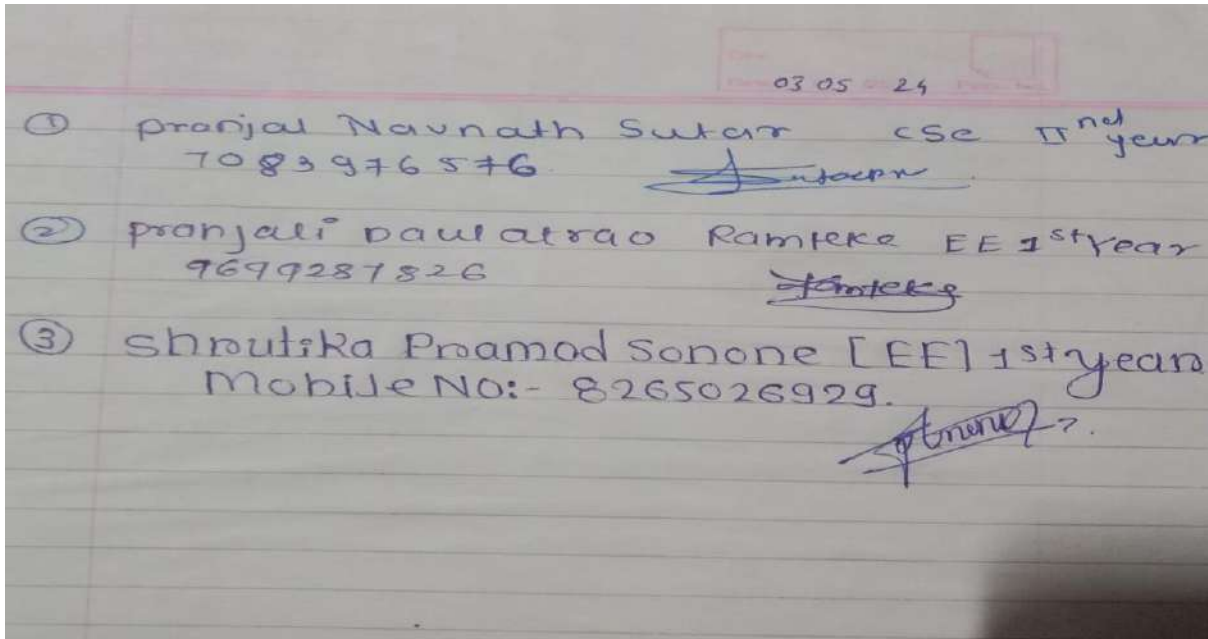 03 05 24
① Pranjal Navnath Sutar CSE IInd year
7083976576
② Pranjali Daulatrao Ramteke EE 1st Year
9699287826
Ramteke
③ Shroutika Pramod Sonone [EE] 1st year
Mobile NO:- 8265026929.